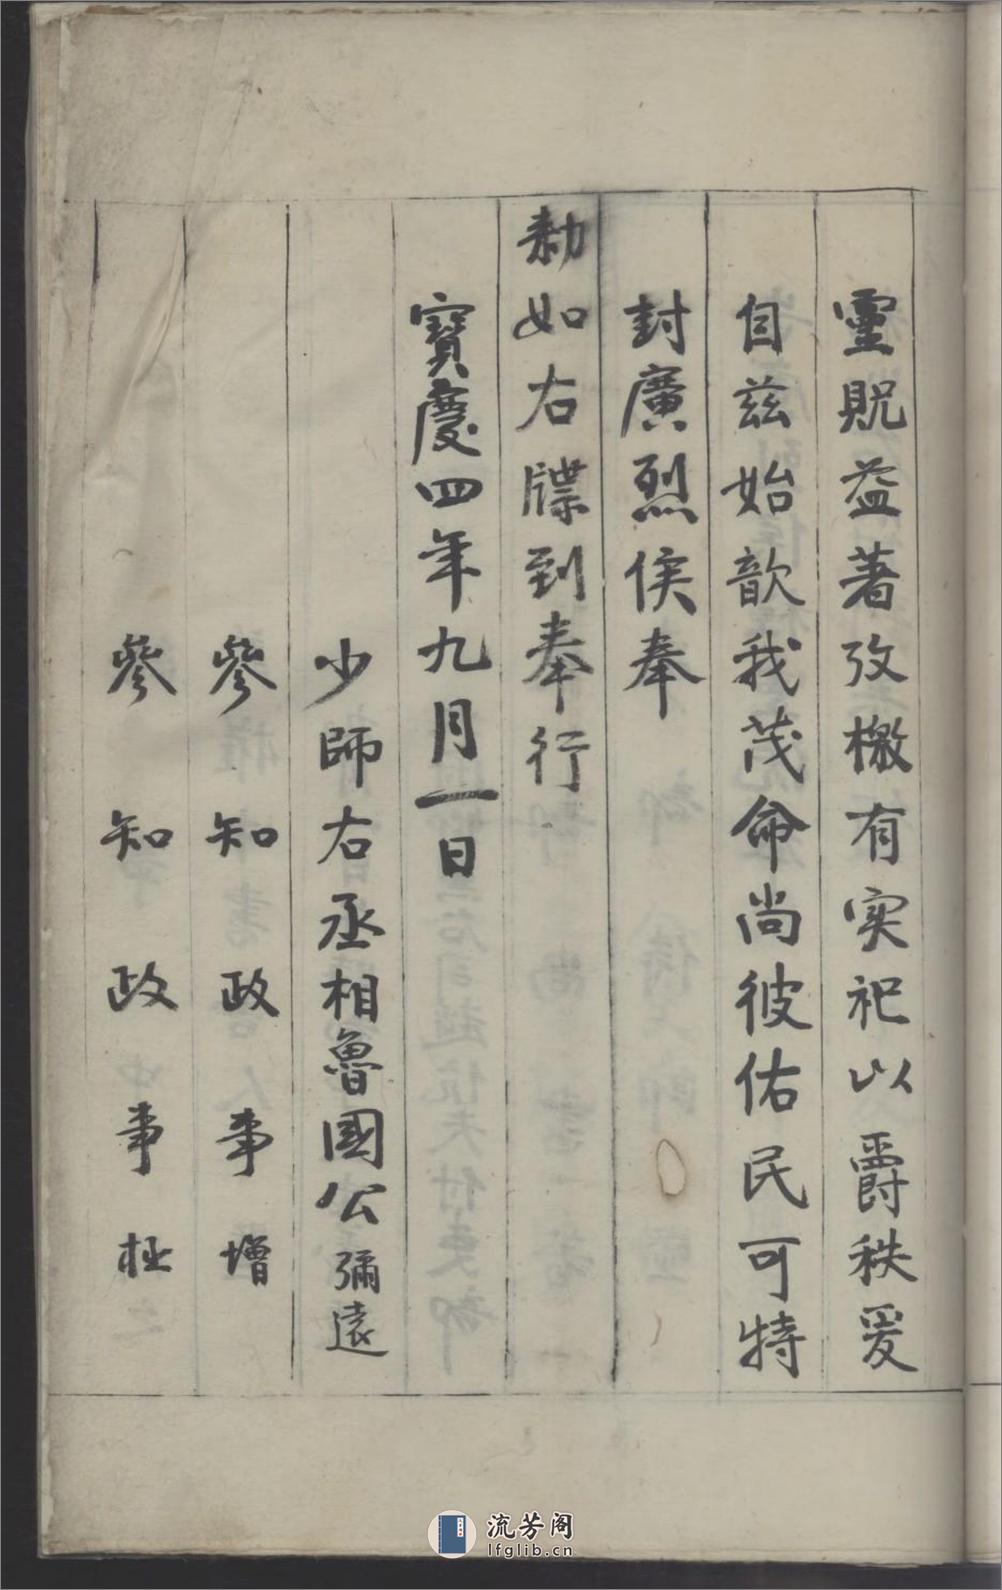 靈貺益著攷檄有实祀以爵秩爰
自茲始歆我茂命尚彼佑民可特
封廣烈侯奉
勑如右牒到奉行
寶慶四年九月一日
少師右丞相魯國公彌遠
參知政事增
參知政事枉
流芳阁
lfglib.cn